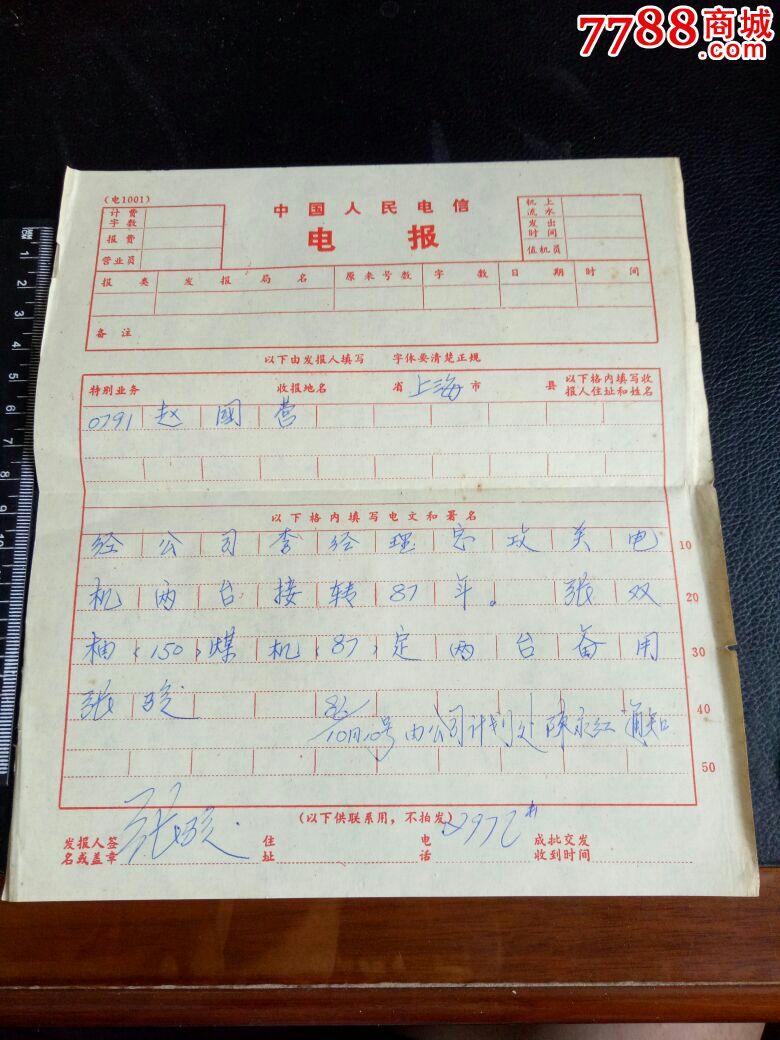 7788商城
.com
(电1001)
中国人民电信
电报
计费字数
报费
营业员
机上流水
发出时间
值机员
报类 发报局名 原来号数 字数 日期 时间
备注
以下由发报人填写 字体要清楚正规
特别业务 收报地名 省 上海 市 县 以下格内填写收报人住址和姓名
0791 赵国营
以下格内填写电文和署名
经公司李经理 攻关电 10
机两台接转87年。 张双 20
柚(150)煤机(87)定两台备用 30
张骏 86/ 40
10月10号由公司计划处陈永红通知
50
(以下供联系用,不拍发)
发报人签名或盖章 张骏 住址 电话 成批交发收到时间